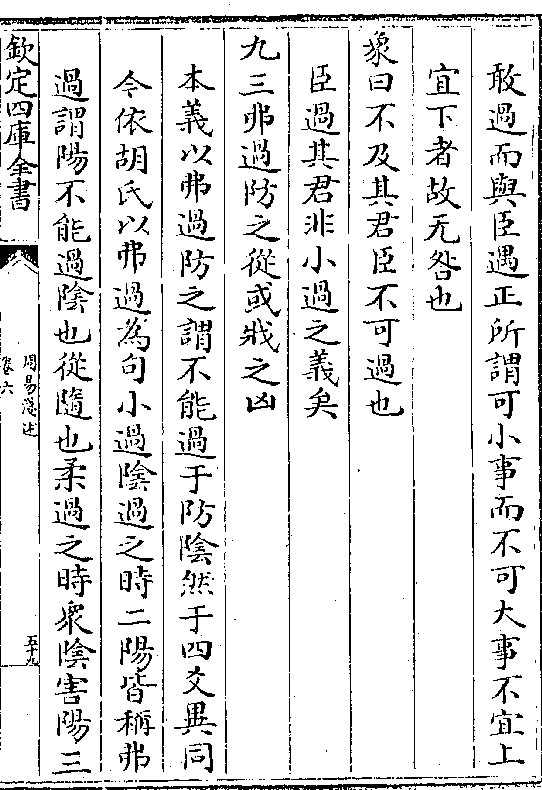 敢過而與臣遇正所謂可小事而不可大事不宜上
宜下者故无咎也
象曰不及其君臣不可過也
臣過其君非小過之義矣
九三弗過防之從或戕之凶
本義以弗過防之謂不能過于防陰然于四爻異同
今依胡氏以弗過為句小過陰過之時二陽皆稱弗
過謂陽不能過陰也從隨也柔過之時衆陰害陽三
欽定四庫全書
周易淺述
卷六
五十九